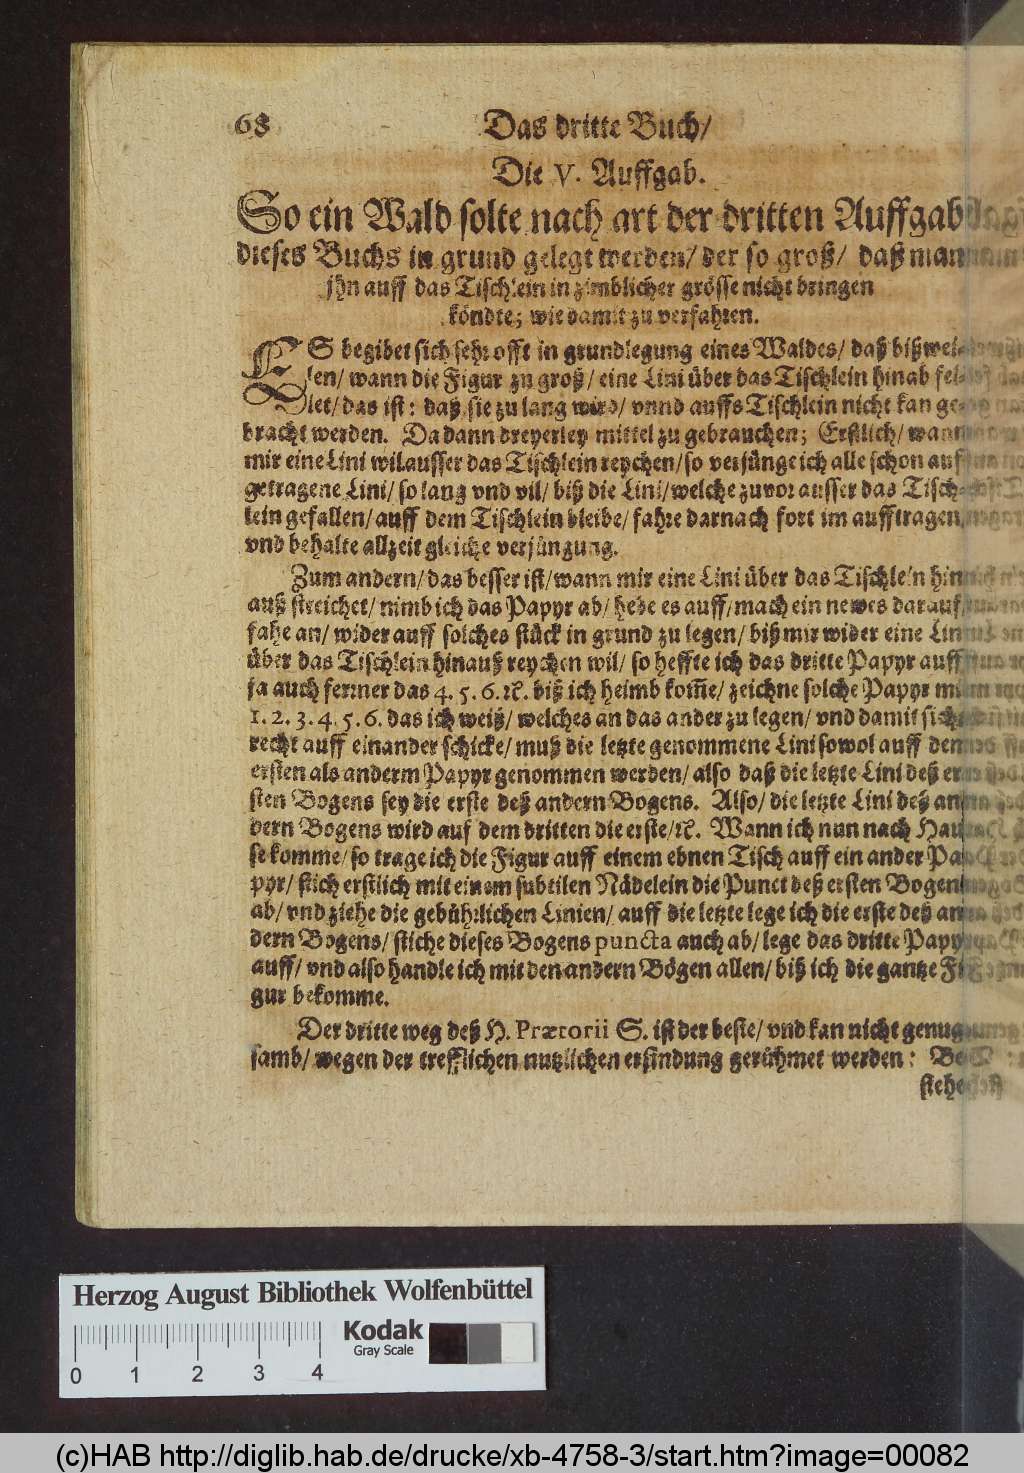 68 Das dritte Buch/
Die V. Auffgab.
So ein Wald solte nach art der dritten Auffgab
dieses Buchs in grund gelegt werden/ der so groß/ daß man
jhn auff das Tischlein in zimblicher grösse nicht bringen
köndte; wie damit zu verfahren.
ES begibet sich sehr offt in grundlegung eines Waldes/ daß bißwei-
len/ wann die Figur zu groß/ eine Lini über das Tischlein hinab fel-
let/ das ist: daß sie zu lang wird/ vnnd auffs Tischlein nicht kan ge-
bracht werden. Da dann dreyerley mittel zu gebrauchen; Erstlich/ wann
mir eine Lini wil ausser das Tischlein reychen/ so verjünge ich alle schon auf
getragene Lini/ so lang vnd vil/ biß die Lini/ welche zuvor ausser das Tisch-
lein gefallen/ auff dem Tischlein bleibe/ fahre darnach fort im aufftragen,
vnd behalte allzeit gleiche verjüngung.
Zum andern/ das besser ist/ wann mir eine Lini über das Tischlein hin
auß streichet/ nimb ich das Papyr ab/ hebe es auff/ mach ein newes darauf,
fahe an/ wider auff solches stück in grund zu legen/ biß mir wider eine Lini
über das Tischlein hinauß reychen wil/ so heffte ich das dritte Papyr auff
ja auch ferrner das 4. 5. 6. ꝛc. biß ich heimb kom̅e/ zeichne solche Papyr mit
1. 2. 3. 4. 5. 6. das ich weiß/ welches an das ander zu legen/ vnd damit sichs
recht auff einander schicke/ muß die letzte genommene Lini sowol auff dem
ersten als anderm Papyr genommen werden/ also daß die letzte Lini deß er-
sten Bogens sey die erste deß andern Bogens. Also/ die letzte Lini deß an-
dern Bogens wird auf dem dritten die erste/ ꝛc. Wann ich nun nach Hau-
se komme/ so trage ich die Figur auff einem ebnen Tisch auff ein ander Pa-
pyr/ stich erstlich mit einem subtilen Nädelein die Punct deß ersten Bogen
ab/ vnd ziehe die gebührlichen Linien/ auff die letzte lege ich die erste deß an-
dern Bogens/ stiche dieses Bogens puncta auch ab/ lege das dritte Papyr
auff/ vnd also handle ich mit den andern Bögen allen/ biß ich die gantze Fi-
gur bekomme.
Der dritte weg deß H. Prætorii S. ist der beste/ vnd kan nicht genug
samb/ wegen der trefflichen nutzlichen erfindung gerühmet werden: Be-
stehe
Herzog August Bibliothek Wolfenbüttel
Kodak
Gray Scale
0 1 2 3 4
(c)HAB http://diglib.hab.de/drucke/xb-4758-3/start.htm?image=00082